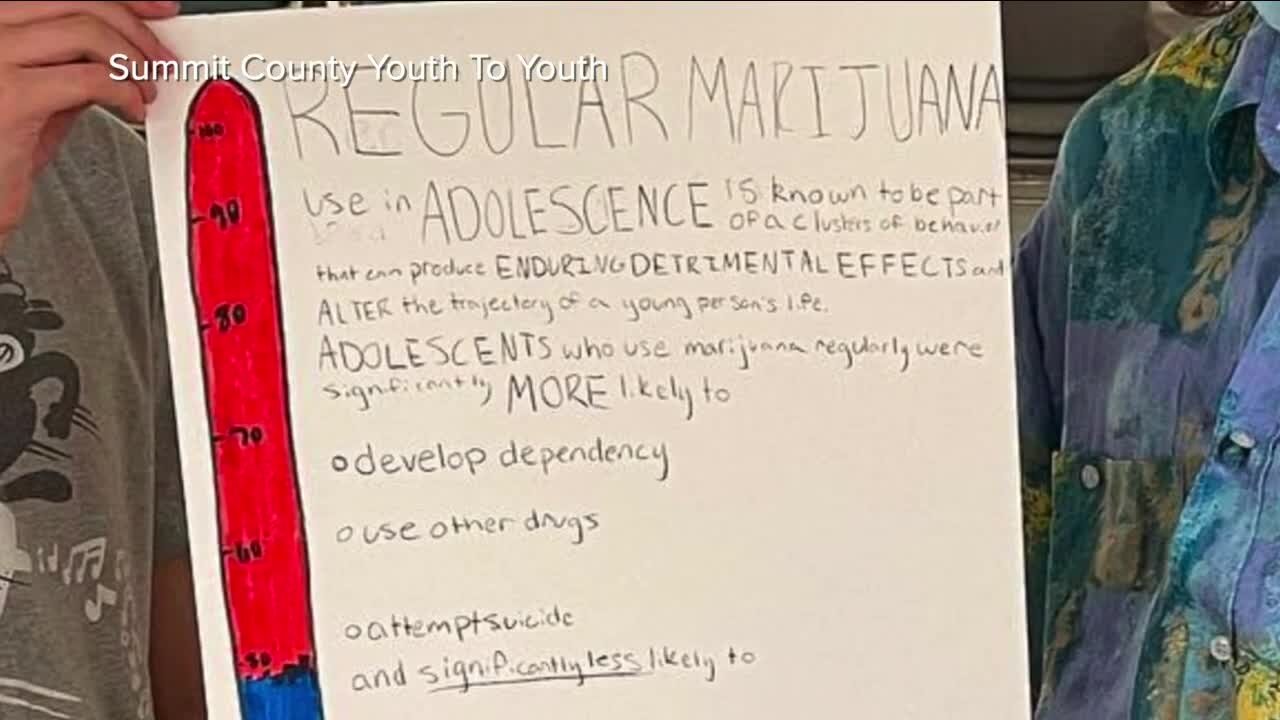 Summit County Youth To Youth
REGULAR MARIJUANA
100
use in ADOLESCENCE is known to be part
of a clusters of behavior
90
that can produce ENDURING DETRIMENTAL EFFECTS and
ALTER the trajectory of a young person's life.
80
ADOLESCENTS who use marijuana regularly were
significantly MORE likely to
70
o develop dependency
o use other drugs
60
o attempt suicide
50
and significantly less likely to